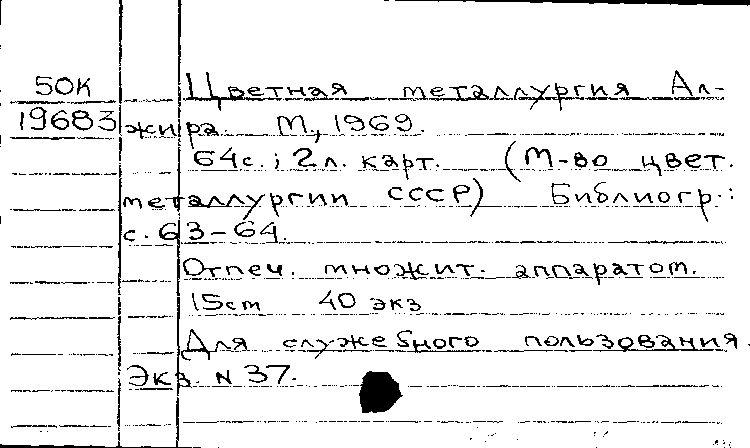 50К Цветная металлургия Ал-
19683 жира. М., 1969.
64с.; 2л. карт. (М-во цвет.
металлургии СССР) Библиогр.:
с. 63-64.
Отпеч. множит. аппаратом.
15см 40 экз
Для служебного пользования.
Экз. N 37.